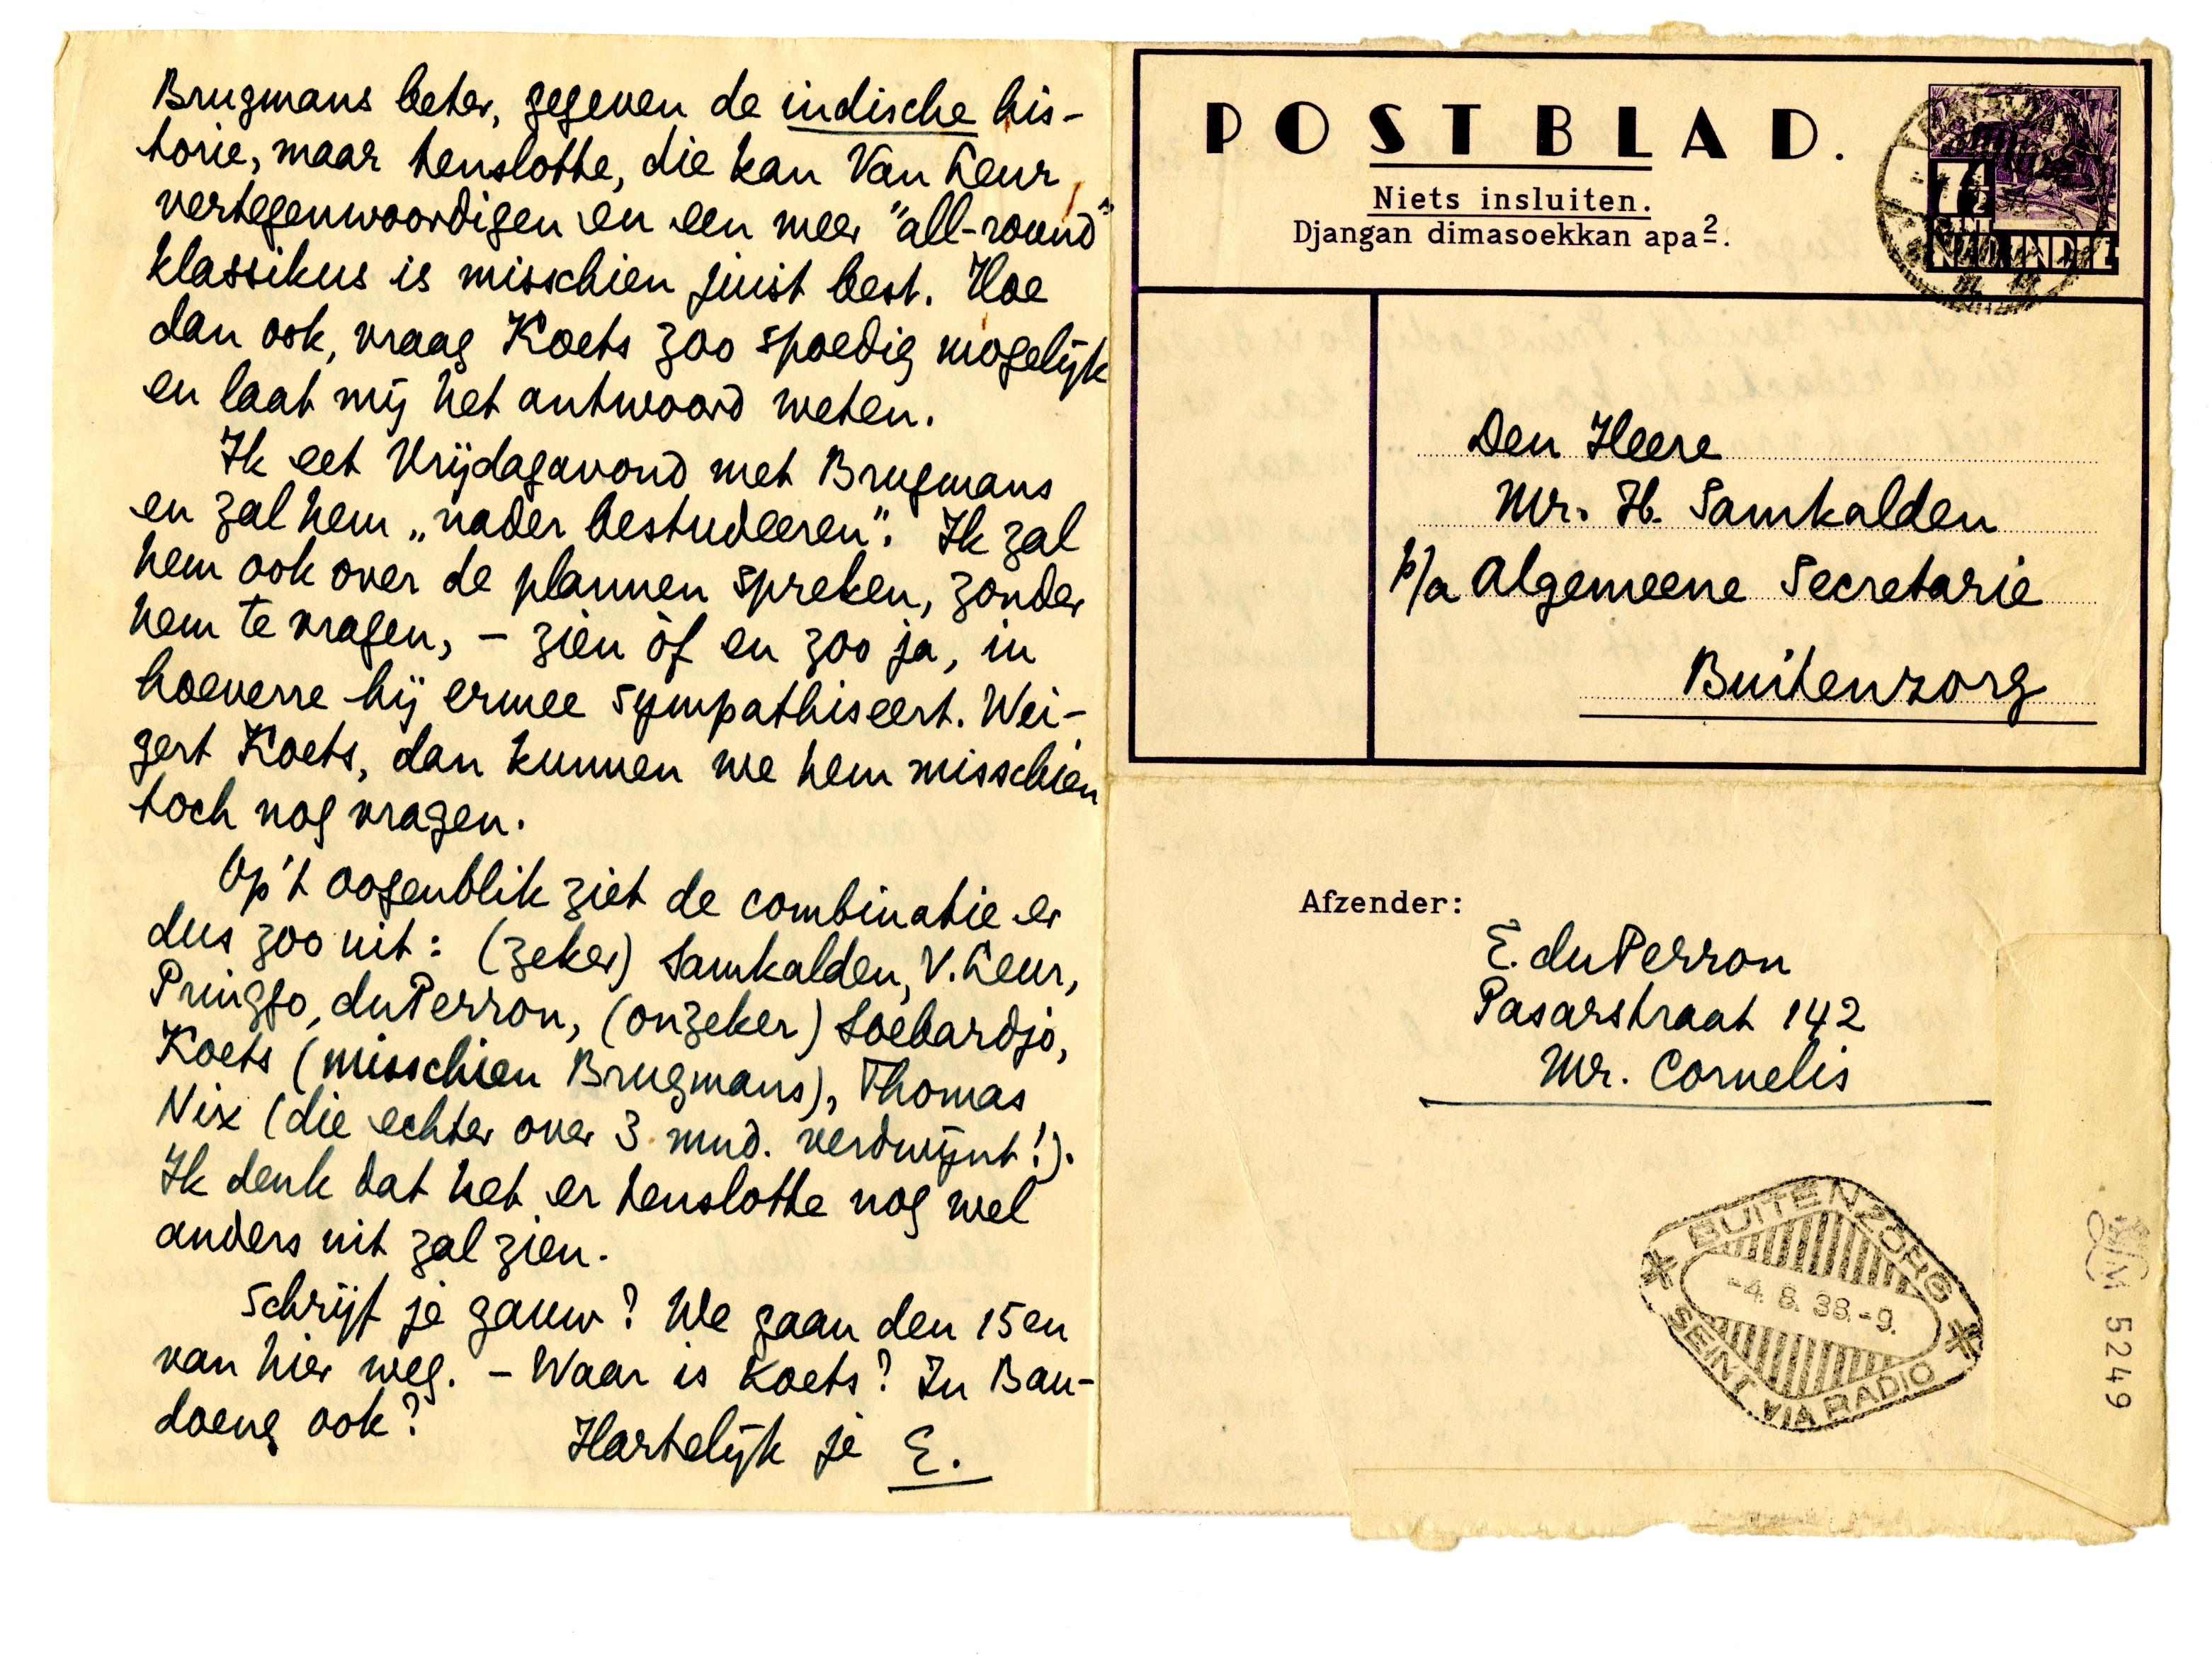 Brugmans beter, gegeven de indische his-
torie, maar tenslotte, die kan Van Leur
vertegenwoordigen en een meer "all-round"
klassikus is misschien juist best. Hoe
dan ook, vraag Koets zoo spoedig mogelijk
en laat mij het antwoord weten.
Ik eet Vrijdagavond met Brugmans
en zal hem „nader bestudeeren". Ik zal
hem ook over de plannen spreken, zonder
hem te vragen, – zien òf en zoo ja, in
hoeverre hij ermee sympathiseert. Wei-
gert Koets, dan kunnen we hem misschien
toch nog vragen.
Op 't oogenblik ziet de combinatie er
dus zoo uit: (zeker) Samkalden, V. Leur,
Pringgo, du Perron, (onzeker) Soebardjo,
Koets (misschien Brugmans), Thomas
Nix (die echter over 3 mnd. verdwijnt!).
Ik denk dat het er tenslotte nog wel
anders uit zal zien.
Schrijf je gauw? We gaan den 15en
van hier weg. – Waar is Koets? In Ban-
doeng ook?
Hartelijk je E.
POSTBLAD.
Niets insluiten.
Djangan dimasoekkan apa².
7½
CENT
NED. INDIE
Den Heere
Mr. H. Samkalden
p/a Algemeene Secretarie
Buitenzorg
Afzender:
E. du Perron
Pasarstraat 142
Mr. Cornelis
BUITENZORG
-4.8.38.-9.
SEINT VIA RADIO
LM 5249